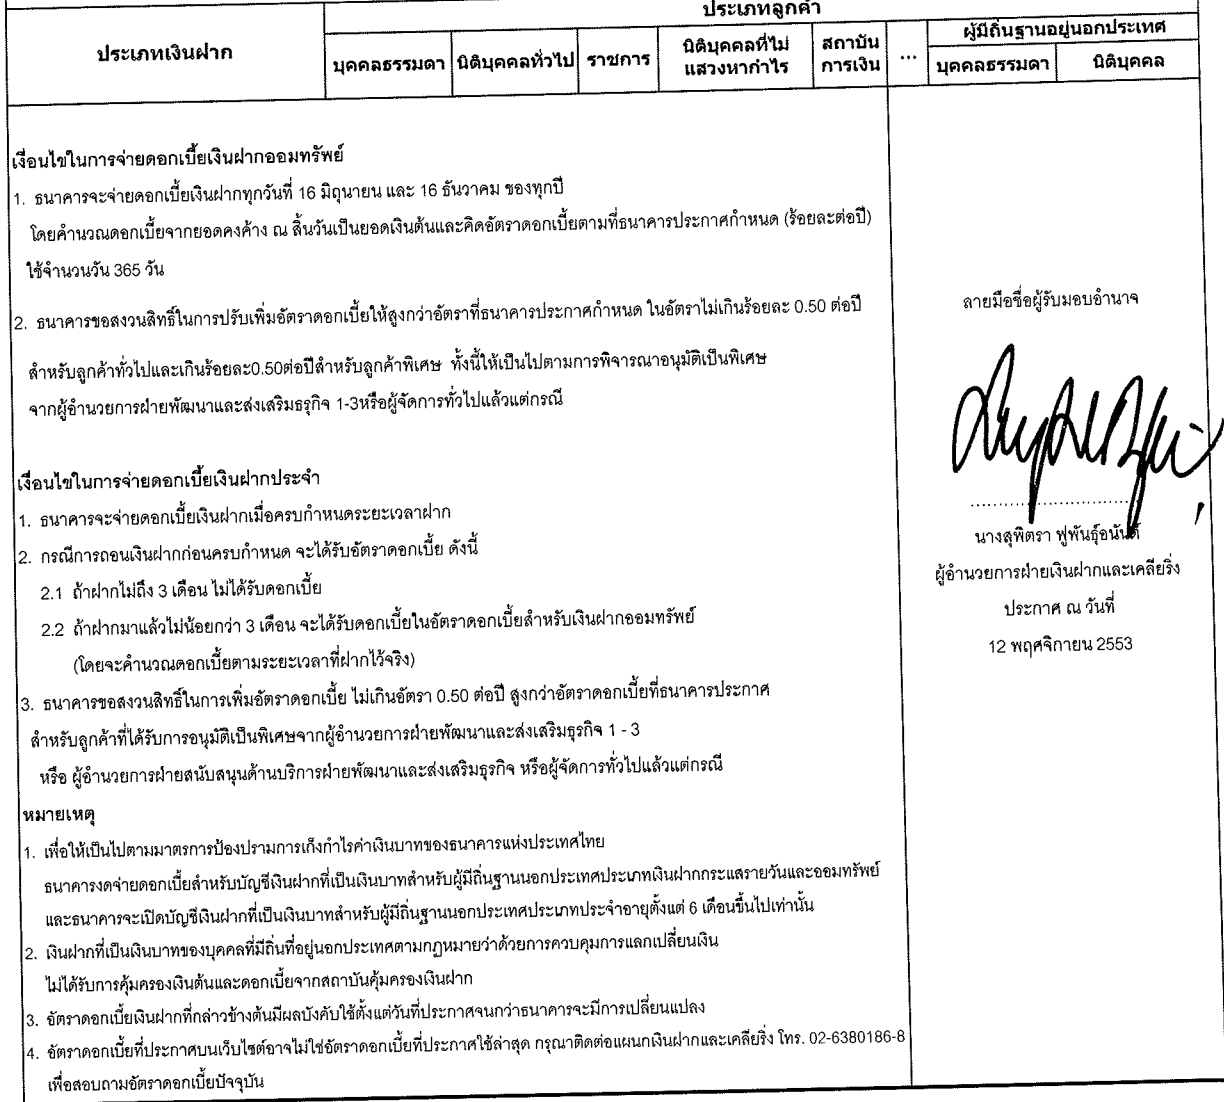 ประเภทลูกค้า
ประเภทเงินฝาก
บุคคลธรรมดา
นิติบุคคลทั่วไป
ราชการ
นิติบุคคลที่ไม่
แสวงหากำไร
สถาบัน
การเงิน
...
ผู้มีถิ่นฐานอยู่นอกประเทศ
บุคคลธรรมดา
นิติบุคคล
เงื่อนไขในการจ่ายดอกเบี้ยเงินฝากออมทรัพย์
1. ธนาคารจะจ่ายดอกเบี้ยเงินฝากทุกวันที่ 16 มิถุนายน และ 16 ธันวาคม ของทุกปี
โดยคำนวณดอกเบี้ยจากยอดคงค้าง ณ สิ้นวันเป็นยอดเงินต้นและคิดอัตราดอกเบี้ยตามที่ธนาคารประกาศกำหนด (ร้อยละต่อปี)
ใช้จำนวนวัน 365 วัน
2. ธนาคารขอสงวนสิทธิ์ในการปรับเพิ่มอัตราดอกเบี้ยให้สูงกว่าอัตราที่ธนาคารประกาศกำหนด ในอัตราไม่เกินร้อยละ 0.50 ต่อปี
สำหรับลูกค้าทั่วไปและเกินร้อยละ0.50ต่อปีสำหรับลูกค้าพิเศษ ทั้งนี้ให้เป็นไปตามการพิจารณาอนุมัติเป็นพิเศษ
จากผู้อำนวยการฝ่ายพัฒนาและส่งเสริมธรุกิจ 1-3หรือผู้จัดการทั่วไปแล้วแต่กรณี
เงื่อนไขในการจ่ายดอกเบี้ยเงินฝากประจำ
1. ธนาคารจะจ่ายดอกเบี้ยเงินฝากเมื่อครบกำหนดระยะเวลาฝาก
2. กรณีการถอนเงินฝากก่อนครบกำหนด จะได้รับอัตราดอกเบี้ย ดังนี้
2.1 ถ้าฝากไม่ถึง 3 เดือน ไม่ได้รับดอกเบี้ย
2.2 ถ้าฝากมาแล้วไม่น้อยกว่า 3 เดือน จะได้รับดอกเบี้ยในอัตราดอกเบี้ยสำหรับเงินฝากออมทรัพย์
(โดยจะคำนวณดอกเบี้ยตามระยะเวลาที่ฝากไว้จริง)
3. ธนาคารขอสงวนสิทธิ์ในการเพิ่มอัตราดอกเบี้ย ไม่เกินอัตรา 0.50 ต่อปี สูงกว่าอัตราดอกเบี้ยที่ธนาคารประกาศ
สำหรับลูกค้าที่ได้รับการอนุมัติเป็นพิเศษจากผู้อำนวยการฝ่ายพัฒนาและส่งเสริมธุรกิจ 1 - 3
หรือ ผู้อำนวยการฝ่ายสนับสนุนด้านบริการฝ่ายพัฒนาและส่งเสริมธุรกิจ หรือผู้จัดการทั่วไปแล้วแต่กรณี
หมายเหตุ
1. เพื่อให้เป็นไปตามมาตรการป้องปรามการเก็งกำไรค่าเงินบาทของธนาคารแห่งประเทศไทย
ธนาคารงดจ่ายดอกเบี้ยสำหรับบัญชีเงินฝากที่เป็นเงินบาทสำหรับผู้มีถิ่นฐานนอกประเทศประเภทเงินฝากกระแสรายวันและออมทรัพย์
และธนาคารจะเปิดบัญชีเงินฝากที่เป็นเงินบาทสำหรับผู้มีถิ่นฐานนอกประเทศประเภทประจำอายุตั้งแต่ 6 เดือนขึ้นไปเท่านั้น
2. เงินฝากที่เป็นเงินบาทของบุคคลที่มีถิ่นที่อยู่นอกประเทศตามกฎหมายว่าด้วยการควบคุมการแลกเปลี่ยนเงิน
ไม่ได้รับการคุ้มครองเงินต้นและดอกเบี้ยจากสถาบันคุ้มครองเงินฝาก
3. อัตราดอกเบี้ยเงินฝากที่กล่าวข้างต้นมีผลบังคับใช้ตั้งแต่วันที่ประกาศจนกว่าธนาคารจะมีการเปลี่ยนแปลง
4. อัตราดอกเบี้ยที่ประกาศบนเว็บไซต์อาจไม่ใช่อัตราดอกเบี้ยที่ประกาศใช้ล่าสุด กรุณาติดต่อแผนกเงินฝากและเคลียริ่ง โทร. 02-6380186-8
เพื่อสอบถามอัตราดอกเบี้ยปัจจุบัน
ลายมือชื่อผู้รับมอบอำนาจ
นางสุพิตรา ฟูพันธุ์อนันต์
ผู้อำนวยการฝ่ายเงินฝากและเคลียริ่ง
ประกาศ ณ วันที่
12 พฤศจิกายน 2553